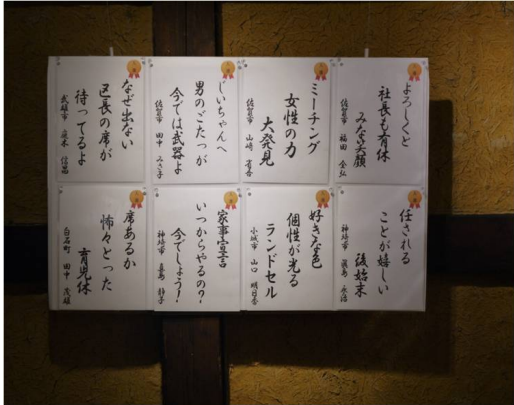 よろしくと
社長も育休
みな笑顔
佐賀市 福田
ミーチング
女性の力
大発見
佐賀市 山崎
じいちゃんへ
男のごたっが
今では武器よ
佐賀市 田中 みさ子
なぜ出ない
区長の席が
待ってるよ
武雄市 庭木 信昌
任される
ことが嬉しい
後始末
神埼市
好きな色
個性が光る
ランドセル
小城市 山口 明日香
家事宣言
いつからやるの?
今でしょう!
神埼市 静子
席あるか
怖々とった
育児休
白石町 田中 茂雄